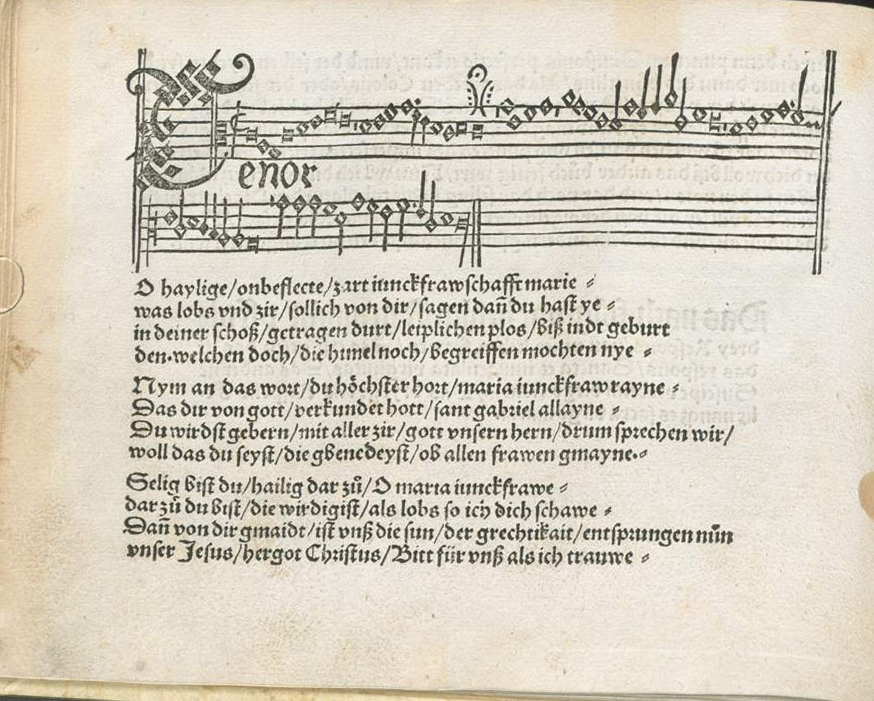 Tenor
O haylige/onbeflecte/zart iunckfrawschafft marie
was lobs vnd zir/sollich von dir/sagen dañ du hast ye
in deiner schoß/getragen durt/leiplichen plos/biß in dt geburt
den welchen doch/die himel noch/begreiffen mochten nye
Nym an das wort/du höchster hort/maria iunckfraw rayne
Das dir von gott/verkundet hott/sant gabriel allayne
Du wirdst gebern/mit aller zir/gott vnsern hern/drum sprechen wir/
woll das du seyst/die gbenedeyst/ob allen frawen gmayne
Selig bist du/hailig dar zů/O maria iunckfrawe
dar zů du bist/die wirdigist/als lobs so ich dich schawe
Dañ von dir gmaidt/ist vnß die sun/der grechtikait/entsprungen nůn
vnser Jesus/hergot Christus/Bitt für vnß als ich trauwe